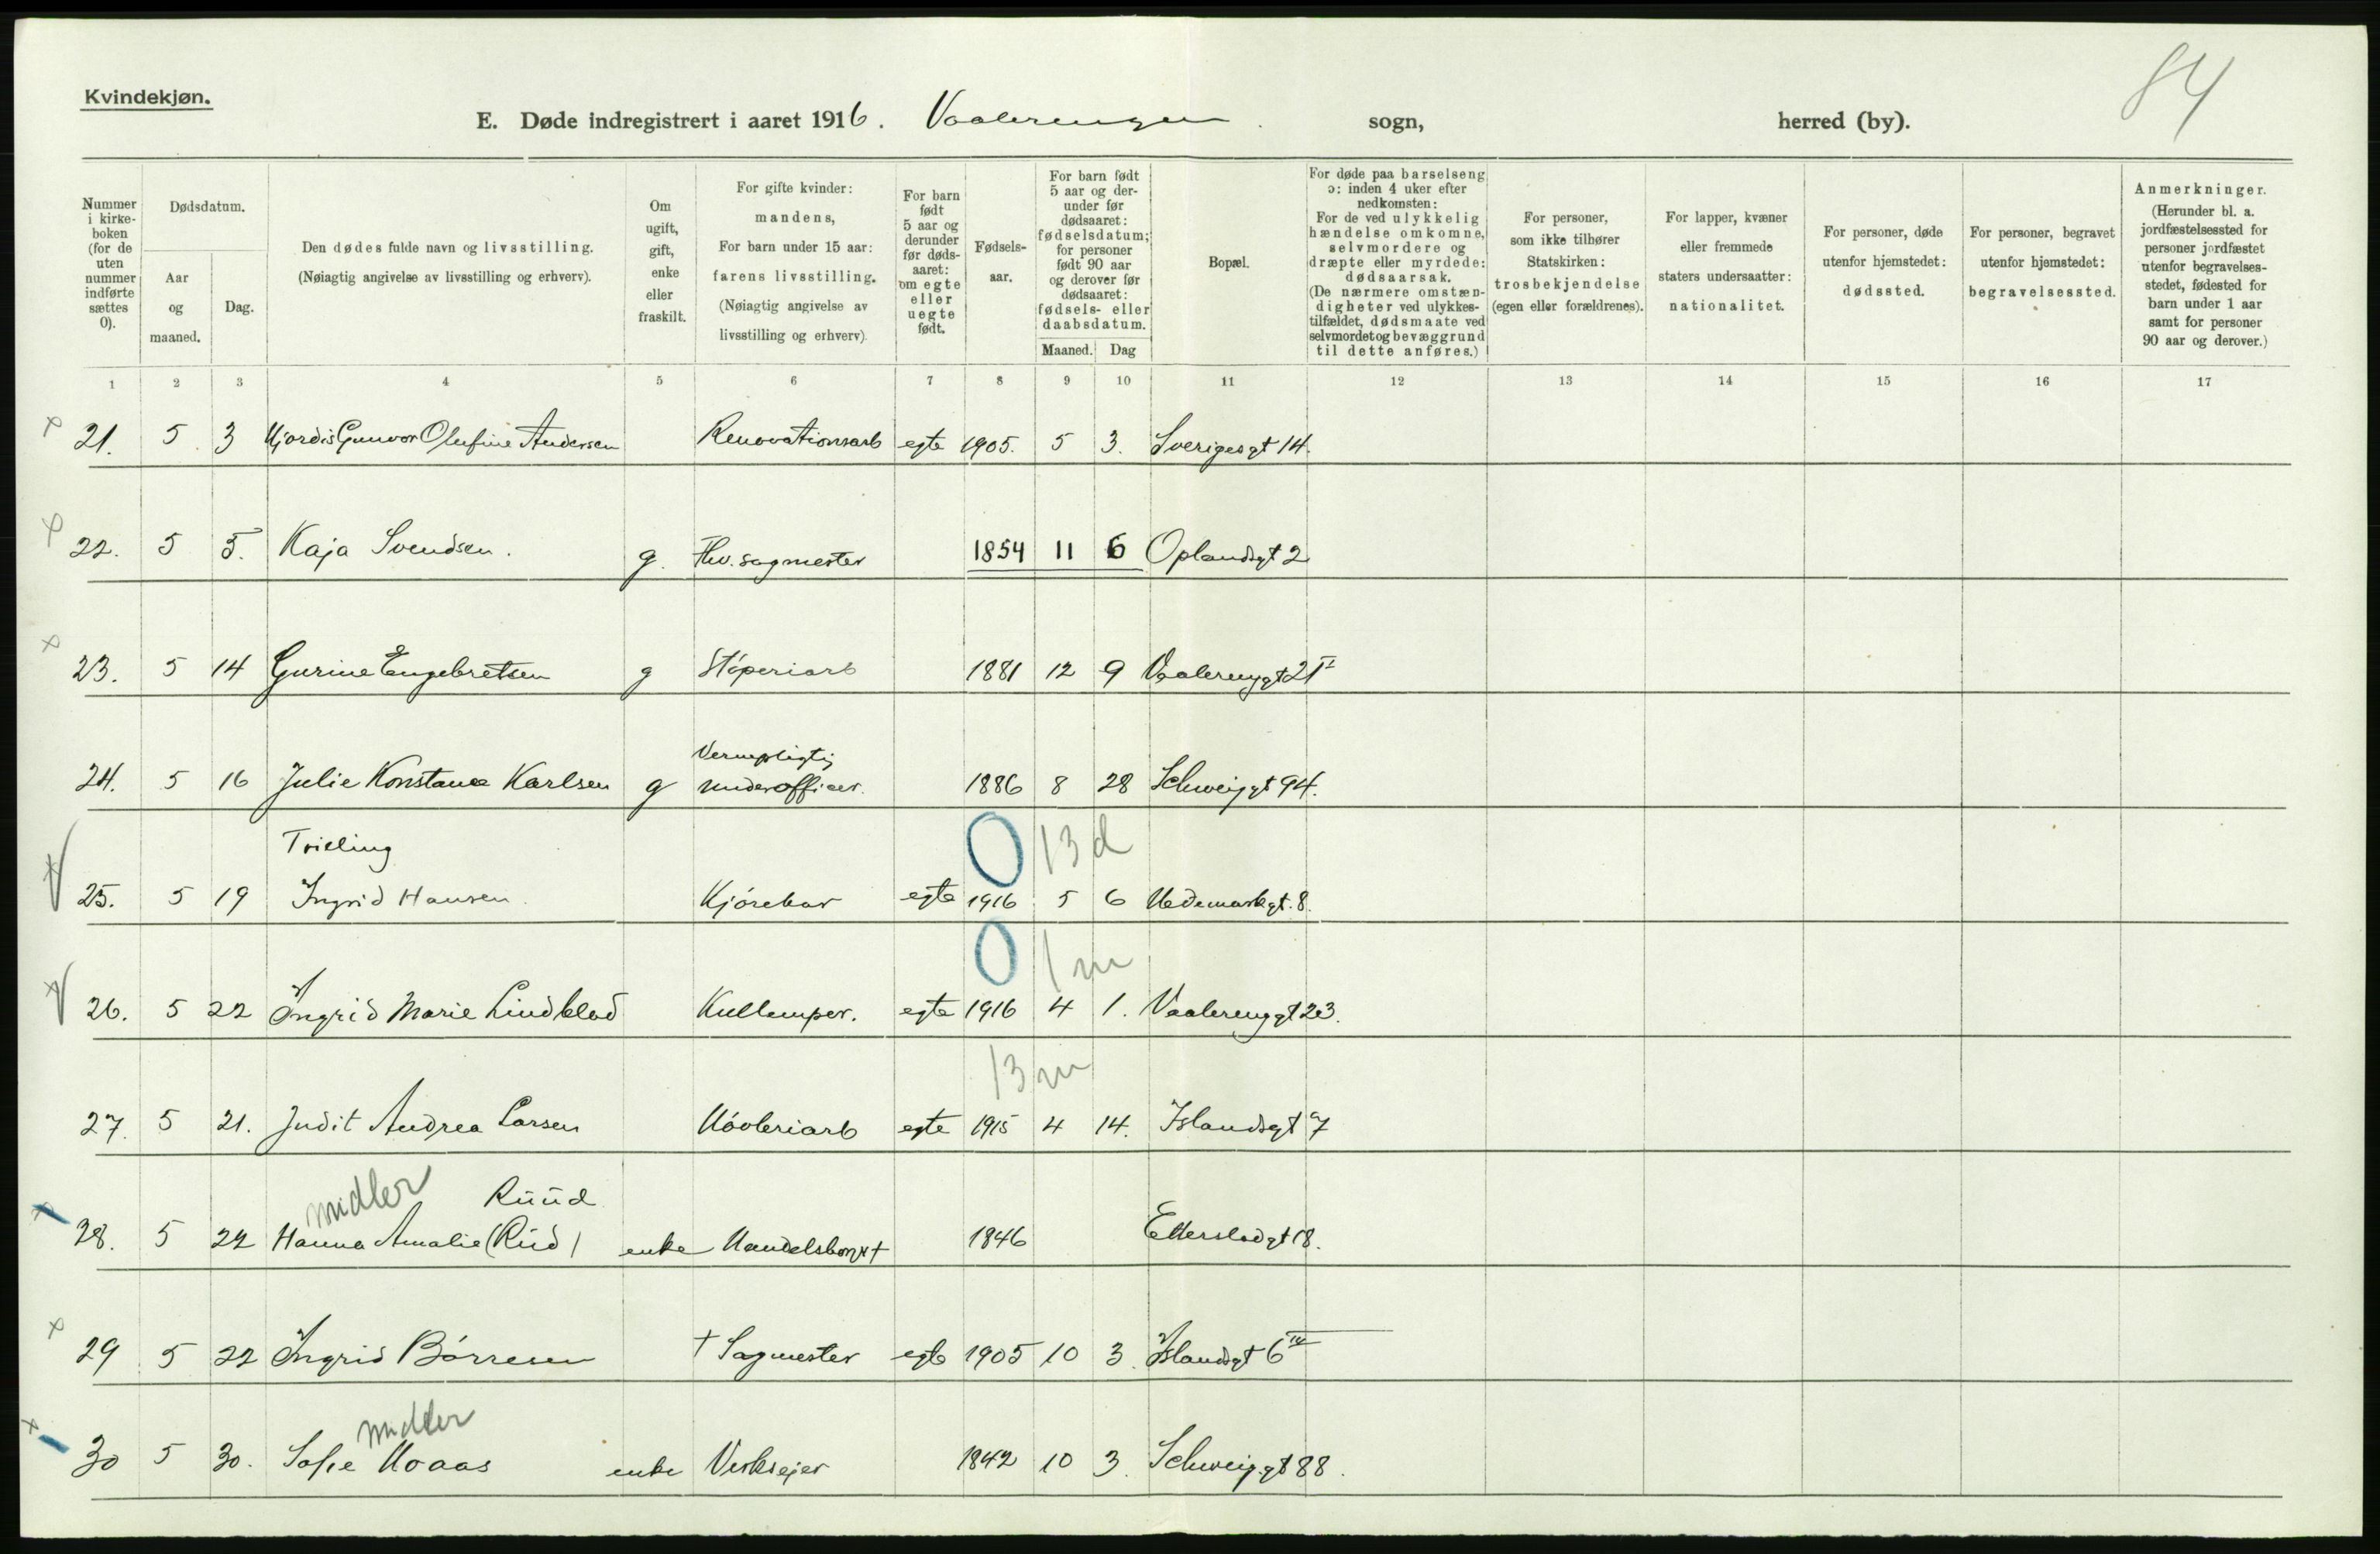 84
Kvindekjøn.
E. Døde indregistrert i aaret 1916. Vaalerengen sogn, herred (by).
Nummer i kirkeboken (for de uten nummer indførte sættes 0).
Dødsdatum.
Aar og maaned.
Dag.
Den dødes fulde navn og livsstilling.
(Nøiagtig angivelse av livsstilling og erhverv).
Om ugift, gift, enke eller fraskilt.
For gifte kvinder: mandens,
For barn under 15 aar: farens livsstilling.
(Nøiagtig angivelse av livsstilling og erhverv)
For barn født 5 aar og derunder før dødsaaret: om egte eller uegte født.
Fødselsaar.
For barn født 5 aar og derunder før dødsaaret: fødselsdatum; for personer født 90 aar og derover før dødsaaret: fødsels- eller daabsdatum.
Maaned. Dag
Bopæl.
For døde paa barselseng ɔ: inden 4 uker efter nedkomsten:
For de ved ulykkelig hændelse omkomne, selvmordere og dræpte eller myrdede: dødsaarsak.
(De nærmere omstændigheter ved ulykkestilfældet, dødsmaate ved selvmordet og bevæggrund til dette anføres.)
For personer, som ikke tilhører Statskirken: trosbekjendelse (egen eller forældrenes).
For lapper, kvæner eller fremmede staters undersaatter: nationalitet.
For personer, døde utenfor hjemstedet: dødssted.
For personer, begravet utenfor hjemstedet: begravelsessted.
Anmerkninger.
(Herunder bl. a. jordfæstelsessted for personer jordfæstet utenfor begravelsesstedet, fødested for barn under 1 aar samt for personer 90 aar og derover.)
1 2 3 4 5 6 7 8 9 10 11 12 13 14 15 16 17
21. 5 3 Hjordis Gunvor Olufine Andersen Renovationsarb egte 1905. 5 3. Sverigesgt 14.
22. 5 5. Kaja Svendsen. g. Fhv. sagmester 1854 11 6 Oplandsgt 2
23. 5 14 Gurine Engebretsen g Støperiarb 1881 12 9 Vaalerenggt 21 II
Vernepligtig
24. 5 16 Julie Konstance Karlsen g underofficer. 1886 8 28 Schweiggt 94.
Tvilling 0 13 d
25. 5 19 Ingrid Hansen. Kjørekar egte 1916 5 6 Hedemarkgt. 8.
0 1 m
26. 5 22 Ingrid Marie Lindblad Kullemper. egte 1916 4 1. Vaalerenggt 23.
13 m
27. 5 21. Judit Andrea Larsen Høvleriarb egte 1915 4 14. Islandsgt 7
midler Ruud
28. 5 22 Hanna Amalie (Rud) enke Handelsborger † 1846 Etterstadgt 18.
29 5 22 Ingrid Børresen † Sagmester egte 1905 10 3. Islandsgt 6 IV
midler
30 5 30. Sofie Moaas enke Verkseier 1842 10 3. Schweiggt 88.